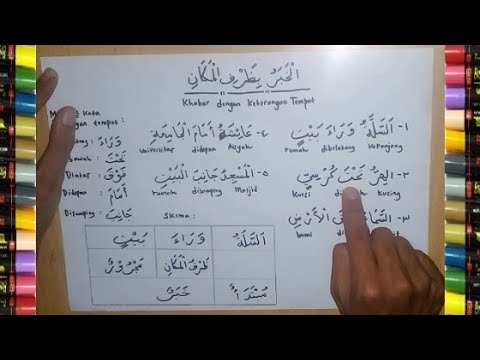 الْخَبَرُ بِظَرْفِ الْمَكَانِ
Khabar dengan Keterangan Tempat
١- السَّلَّةُ وَرَاءَ بَيْتٍ
rumah dibelakang Keranjang
٢- الهِرُّ تَحْتَ كُرْسِيٍّ
Kursi Kucing
٣- السَّمَاءُ الْأَرْضِ
bumi
٤- عَائِشَةُ أَمَامَ الْجَامِعَةِ
Universitas didepan Aisyah
٥- الْمَسْجِدُ جَانِبَ الْبَيْتِ
rumah disamping Masjid
Kata
tempat :
وَرَاءَ
تَحْتَ
Diatas : فَوْقَ
Didepan : أَمَامَ
Disamping : جَانِبَ
Skema :
السَّلَّةُ وَرَاءَ بَيْتٍ
ظَرْفُ الْمَكَانِ مَجْرُوْرٌ
مُبْتَدَأٌ خَبَرٌ